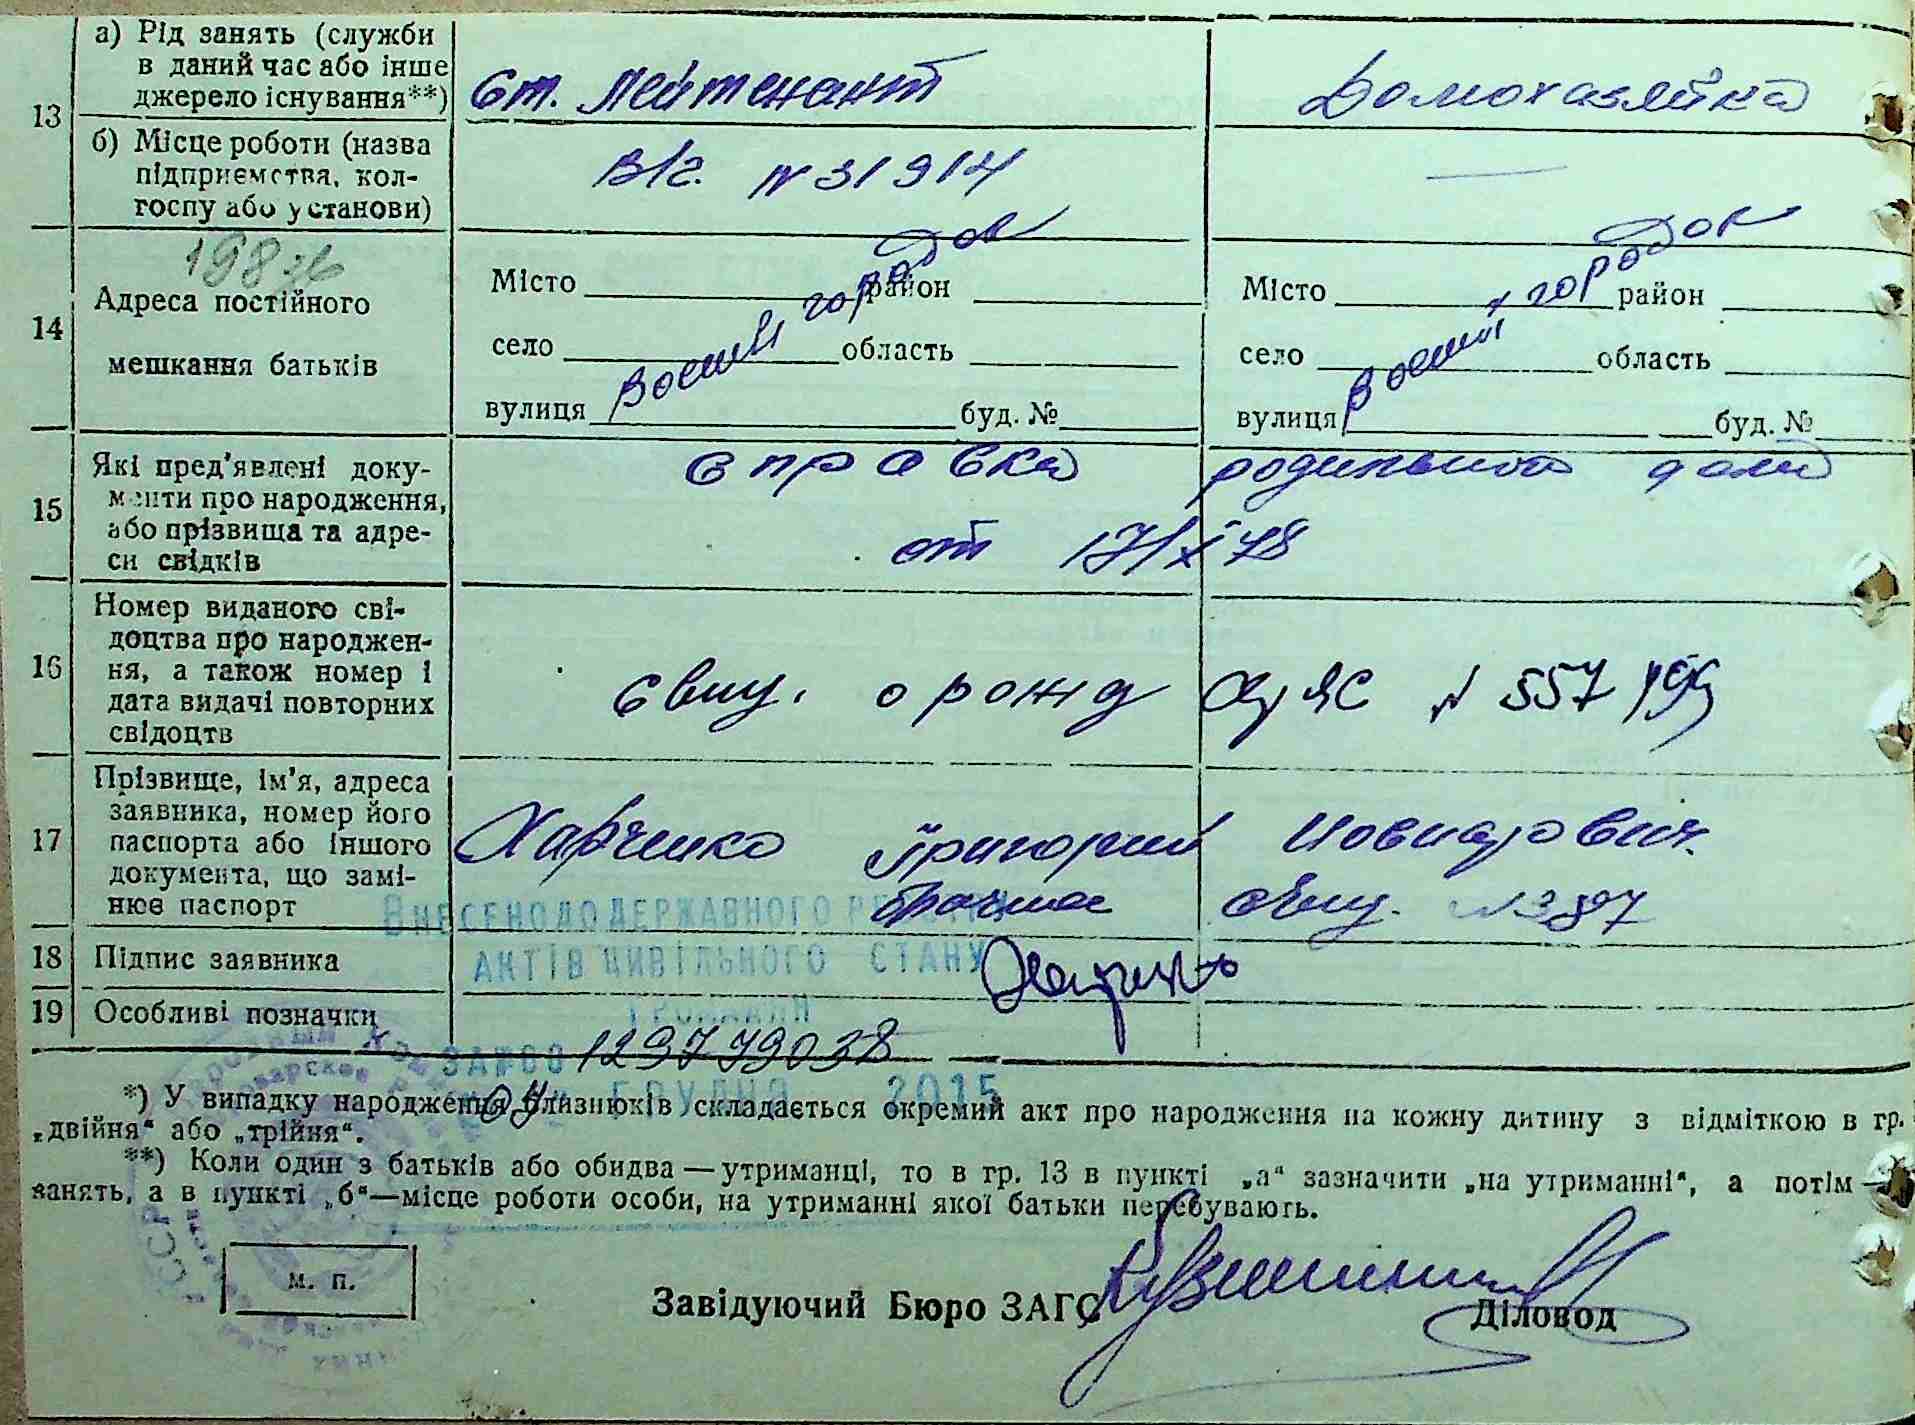 13
а) Рід занять (служби
в даний час або інше
джерело існування**)
Ст. Лейтенант
Домохазяйка
б) Місце роботи (назва
підприємства, кол-
госпу або установи)
В/г. № 31914
—
14
Адреса постійного
мешкання батьків
Місто район
село область
вулиця буд. №
Военный городок
Місто район
село область
вулиця буд. №
Военный городок
15
Які пред'явлені доку-
менти про народження,
або прізвища та адре-
си свідків
справка родильного дома
от 17/X 48
16
Номер виданого сві-
доцтва про народжен-
ня, а також номер і
дата видачі повторних
свідоцтв
свид. о рожд ЯС № 557
17
Прізвище, ім'я, адреса
заявника, номер його
паспорта або іншого
документа, що замі-
нює паспорт
Харченко Григорий
брачное свид. №
18
Підпис заявника
19
Особливі позначки
ВНЕСЕНО ДО ДЕРЖАВНОГО
АКТІВ ЦИВІЛЬНОГО СТАНУ
ГРОМАДЯН
ЗА №00 129779038
ГРУДНЯ 2015
*) У випадку народження близнюків складається окремий акт про народження на кожну дитину з відміткою в гр.
„двійня“ або „трійня“.
**) Коли один з батьків або обидва — утриманці, то в гр. 13 в пункті „а“ зазначити „на утриманні“, а потім —
занять, а в пункті „б“ — місце роботи особи, на утриманні якої батьки перебувають.
м. п.
Завідуючий Бюро ЗАГС
Діловод